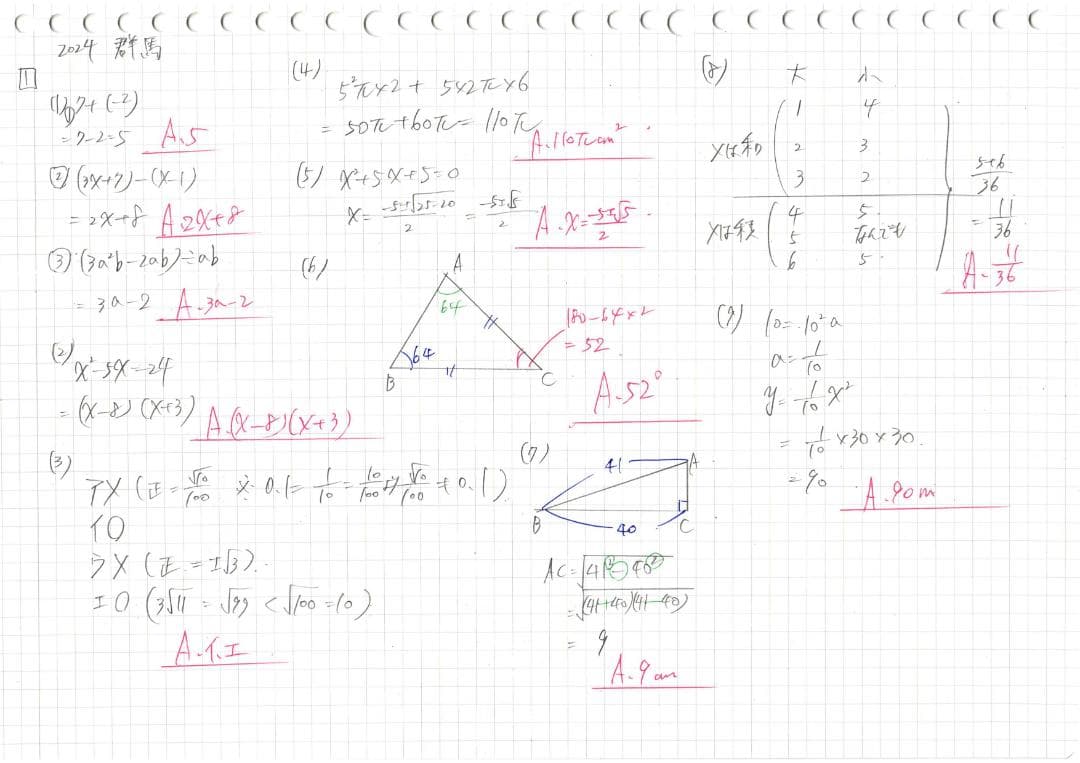 2024 群馬
1
(1)① 7+(-2)
=7-2=5 A.5
② (3x+7)-(x-1)
=2x+8 A.2x+8
③ (3a²b-2ab)÷ab
=3a-2 A.3a-2
(2) x²-5x-24
=(x-8)(x+3) A.(x-8)(x+3)
(3)
ア×(正=√10/100 ※0.1=1/10=10/100より√10/100≠0.1)
イ○
ウ×(正=±√3).
エ○(3√11=√99<√100=10)
A.イ.エ
(4)
5²π×2+5×2π×6
=50π+60π=110π
A.110πcm²
(5) x²+5x+5=0
x=-5±√25-20/2=-5±√5/2
A.x=-5±√5/2
(6)
A
64
64
B
C
180-64×2
=52
A.52°
(7)
41
A
B
40
C
AC=√41²-40²
=√(41+40)(41-40)
=9
A.9cm
(8) 大 小
1 4
Xは和 2 3
3 2
5+6/36
4 5
Xは積 5 なんでも
6 5
=11/36
A.11/36
(9) 10=10²a
a=1/10
y=1/10x²
=1/10×30×30
=90
A.90m